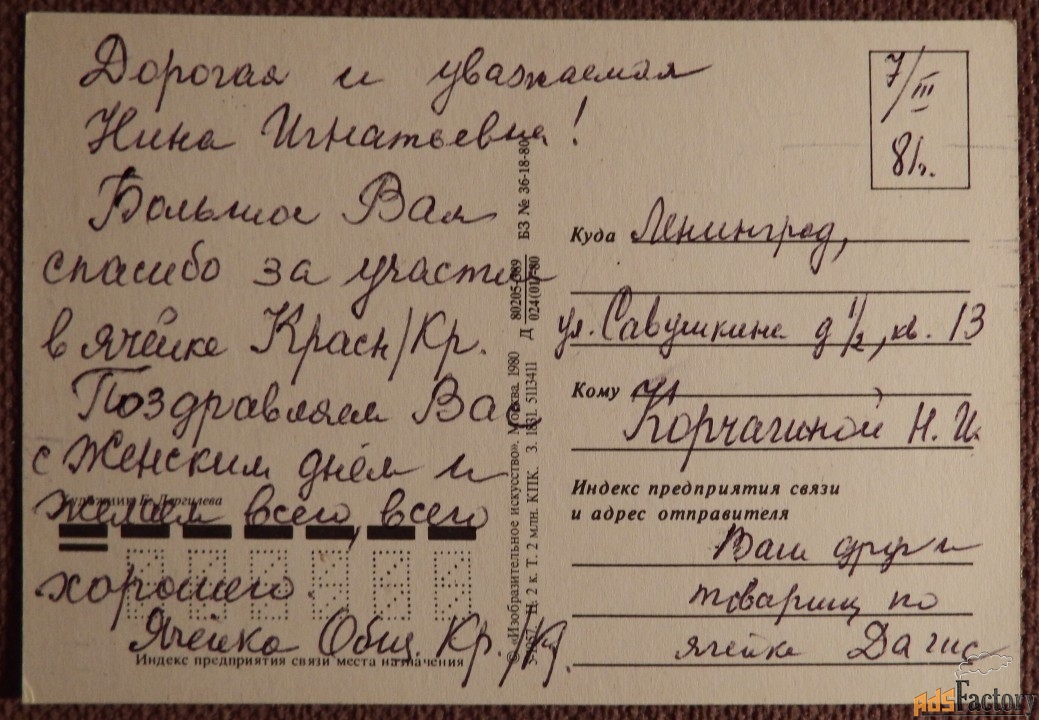 Дорогая и уважаемая
Нина Игнатьевна!
Большое Вам
спасибо за участие
в ячейке Красн/Кр.
Поздравляем Вас
с Женским днём и
желаем всего, всего
хорошего.
Ячейка Общ. Кр./Кр.
Индекс предприятия связи места назначения
«Изобразительное искусство». Москва. 1980
2 к. Т. 2 млн. КПК. З. 1831. 5113411
БЗ № 36-18-80
7/III
81г.
Куда Ленинград,
ул. Савушкина д 1/2, кв. 13
Кому
Корчагиной Н. И.
Индекс предприятия связи
и адрес отправителя
Ваш друг и
товарищ по
ячейке Дагис
AdsFactory